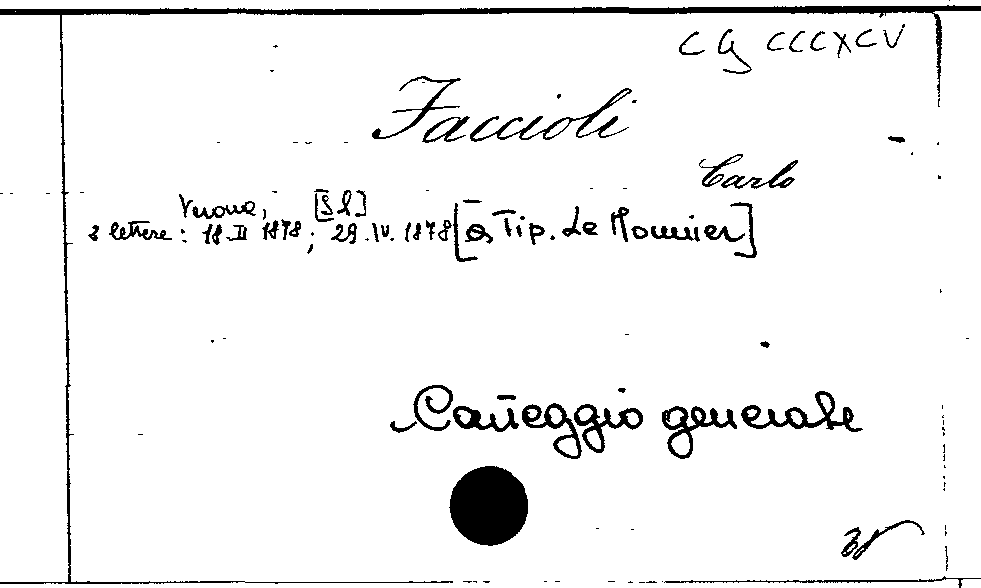 CG CCCXCV
Faccioli
Carlo
Verona, [S.l]
2 lettere: 18.II 1878; 29.IV. 1878 [a Tip. Le Monnier]
Carteggio generale